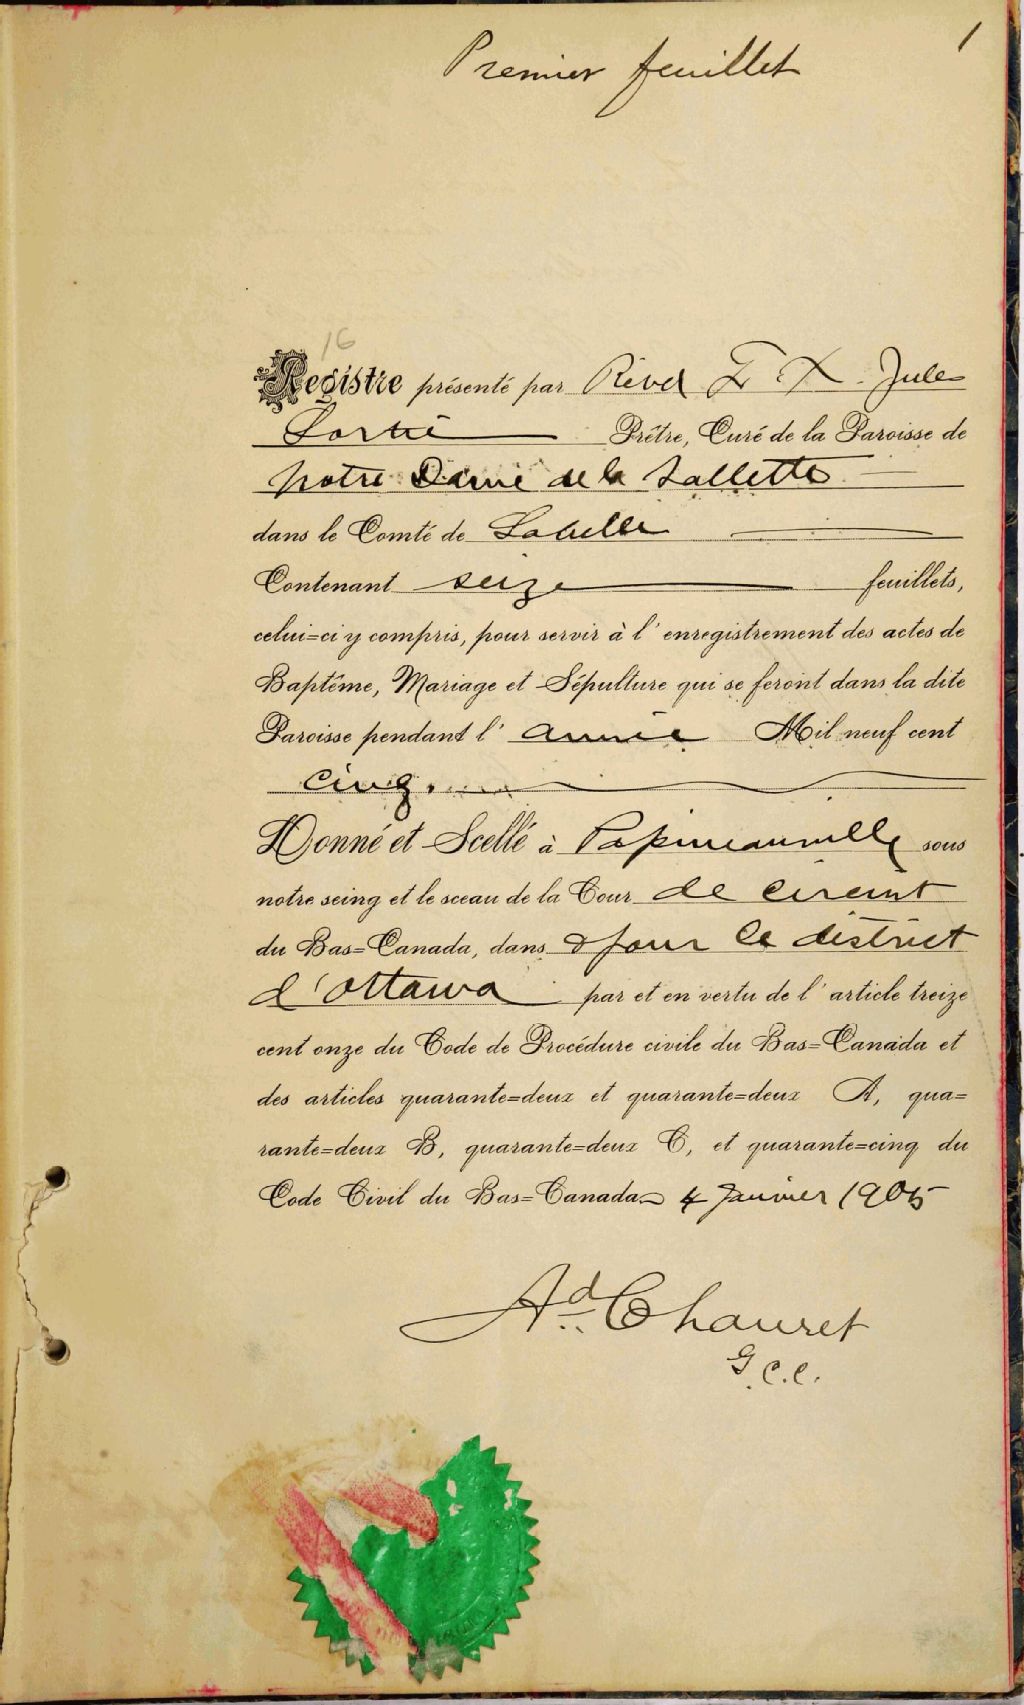 1
Premier feuillet
16
Registre présenté par Révd F. X. Jules
Prêtre, Curé de la Paroisse de
Notre Dame de la Sallette
dans le Comté de Labelle
Contenant seize feuillets,
celui=ci y compris, pour servir à l'enregistrement des actes de
Baptême, Mariage et Sépulture qui se feront dans la dite
Paroisse pendant l'année Mil neuf cent
cinq.
Donné et Scellé à Papineauville sous
notre seing et le sceau de la Cour de circuit
du Bas=Canada, dans & pour le district
d'Ottawa par et en vertu de l'article treize
cent onze du Code de Procédure civile du Bas=Canada et
des articles quarante=deux et quarante=deux A, qua=
rante=deux B, quarante=deux C, et quarante=cinq du
Code Civil du Bas=Canada 4 Janvier 1905
Ad. Chauret
G.C.C.